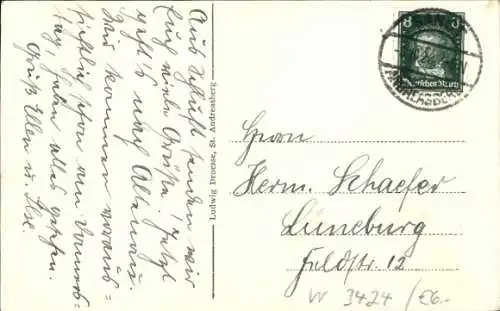 Aus Schluft senden wir
Euch viele Grüße! Jetzt
geht's nach Altenau.
Wir kommen voraus=
sichtlich schon am Donners=
tag, haben alles gesehen.
Gruß Ellen u. Ilse.
Ludwig Droesse, St. Andreasberg
8 3
Deutsches Reich
ANDREASBERG
Herrn
Herm. Schaefer
Lüneburg
Feldstr. 12
W 3424 / €6.-